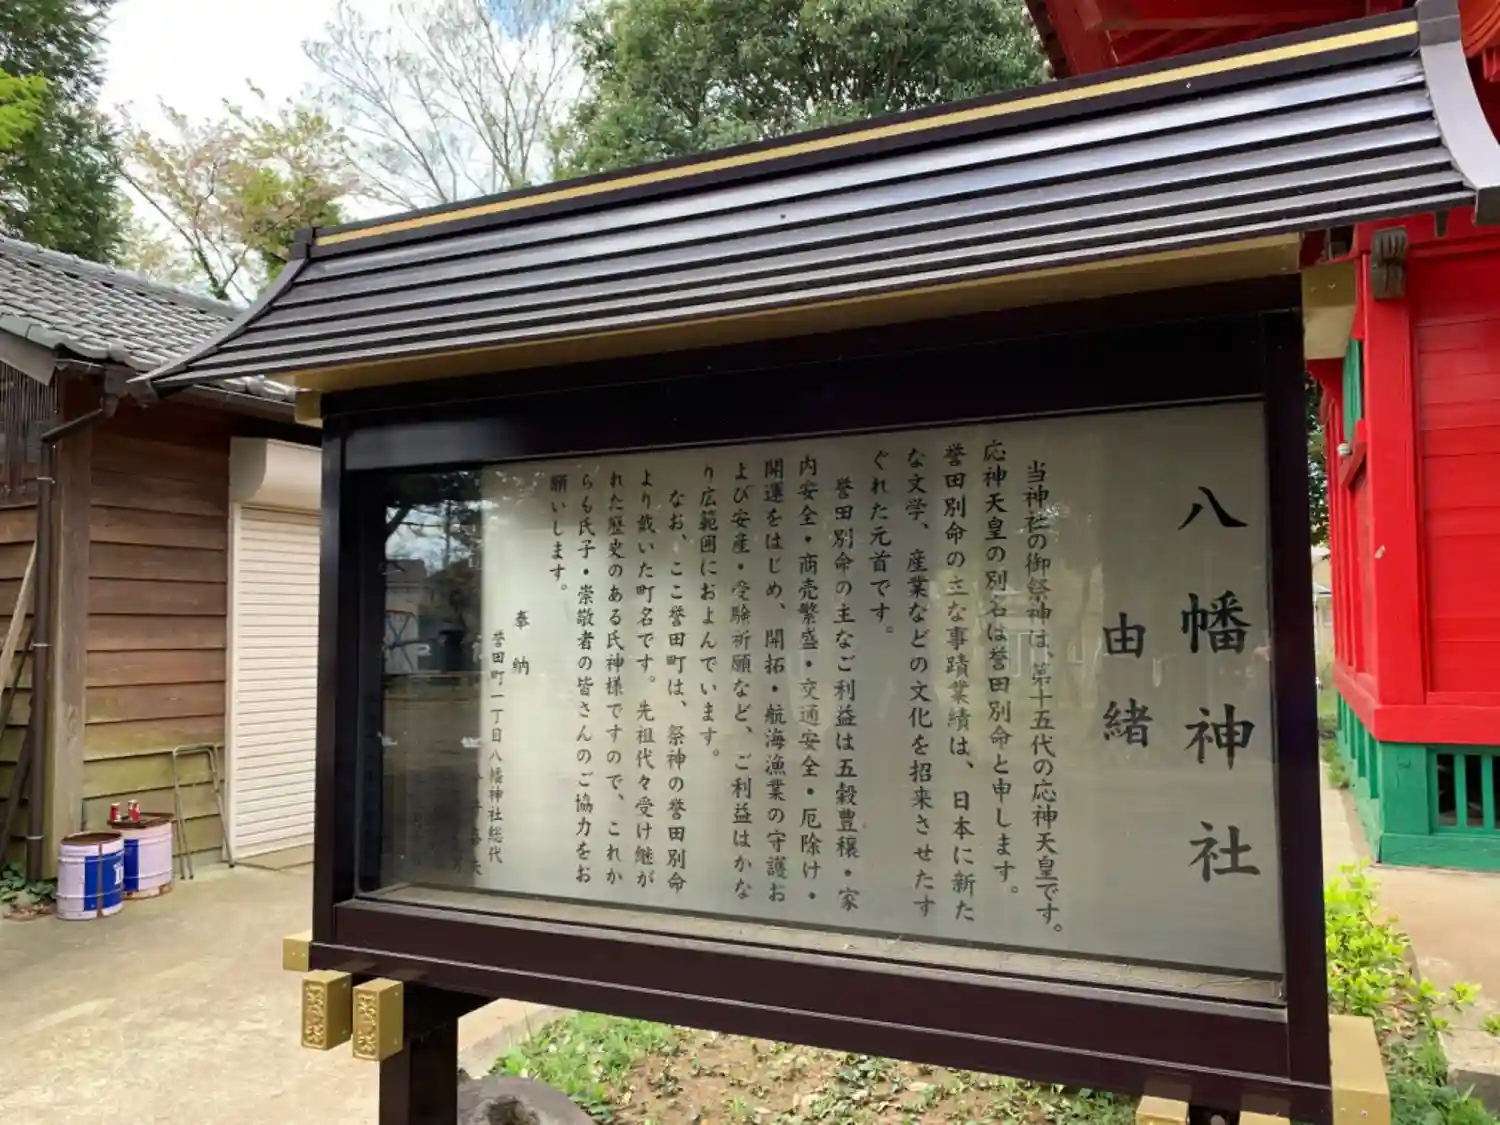 八幡神社
由緒
当神社の御祭神は、第十五代の応神天皇です。
応神天皇の別名は誉田別命と申します。
誉田別命の主な事蹟業績は、日本に新た
な文学、産業などの文化を招来させたす
ぐれた元首です。
誉田別命の主なご利益は五穀豊穣・家
内安全・商売繁盛・交通安全・厄除け・
開運をはじめ、開拓・航海漁業の守護お
よび安産・受験祈願など、ご利益はかな
り広範囲におよんでいます。
なお、ここ誉田町は、祭神の誉田別命
より戴いた町名です。先祖代々受け継が
れた歴史のある氏神様ですので、これか
らも氏子・崇敬者の皆さんのご協力をお
願いします。
奉納
誉田町一丁目八幡神社総代